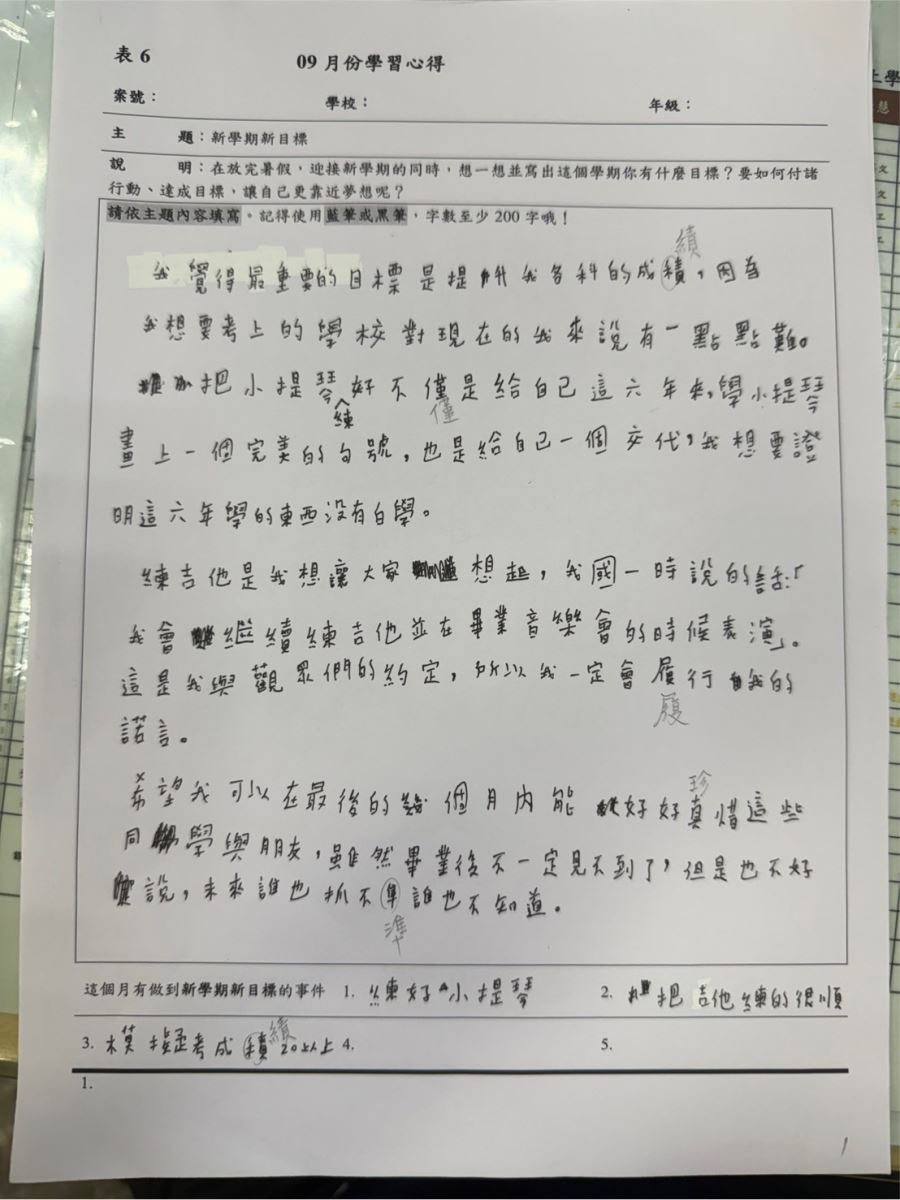 表 6 09 月份學習心得
案號： 學校： 年級：
主 題：新學期新目標
說 明：在放完暑假，迎接新學期的同時，想一想並寫出這個學期你有什麼目標？要如何付諸
行動、達成目標，讓自己更靠近夢想呢？
請依主題內容填寫。記得使用藍筆或黑筆，字數至少 200 字哦！
績
我覺得最重要的目標是提升我各科的成積，因為
我想要考上的學校對現在的我來說有一點點難。
把小提琴練好不僅是給自己這六年來，學小提琴
僅
畫上一個完美的句號，也是給自己一個交代，我想要證
明這六年學的東西沒有白學。
練吉他是我想讓大家想起，我國一時說的話：「
我會繼續練吉他並在畢業音樂會的時候表演」。
這是我與觀眾們的約定，所以我一定會履行我的
履
諾言。
珍
希望我可以在最後的幾個月內能好好真惜這些
同學與朋友，雖然畢業後不一定見不到了，但是也不好
說，未來誰也抓不隼誰也不知道。
準
這個月有做到新學期新目標的事件 1. 練好小提琴 2. 把吉他練的很順
績
3. 模擬考成積 20以上 4. 5.
1.
上學
慧
文
文
工
工
1